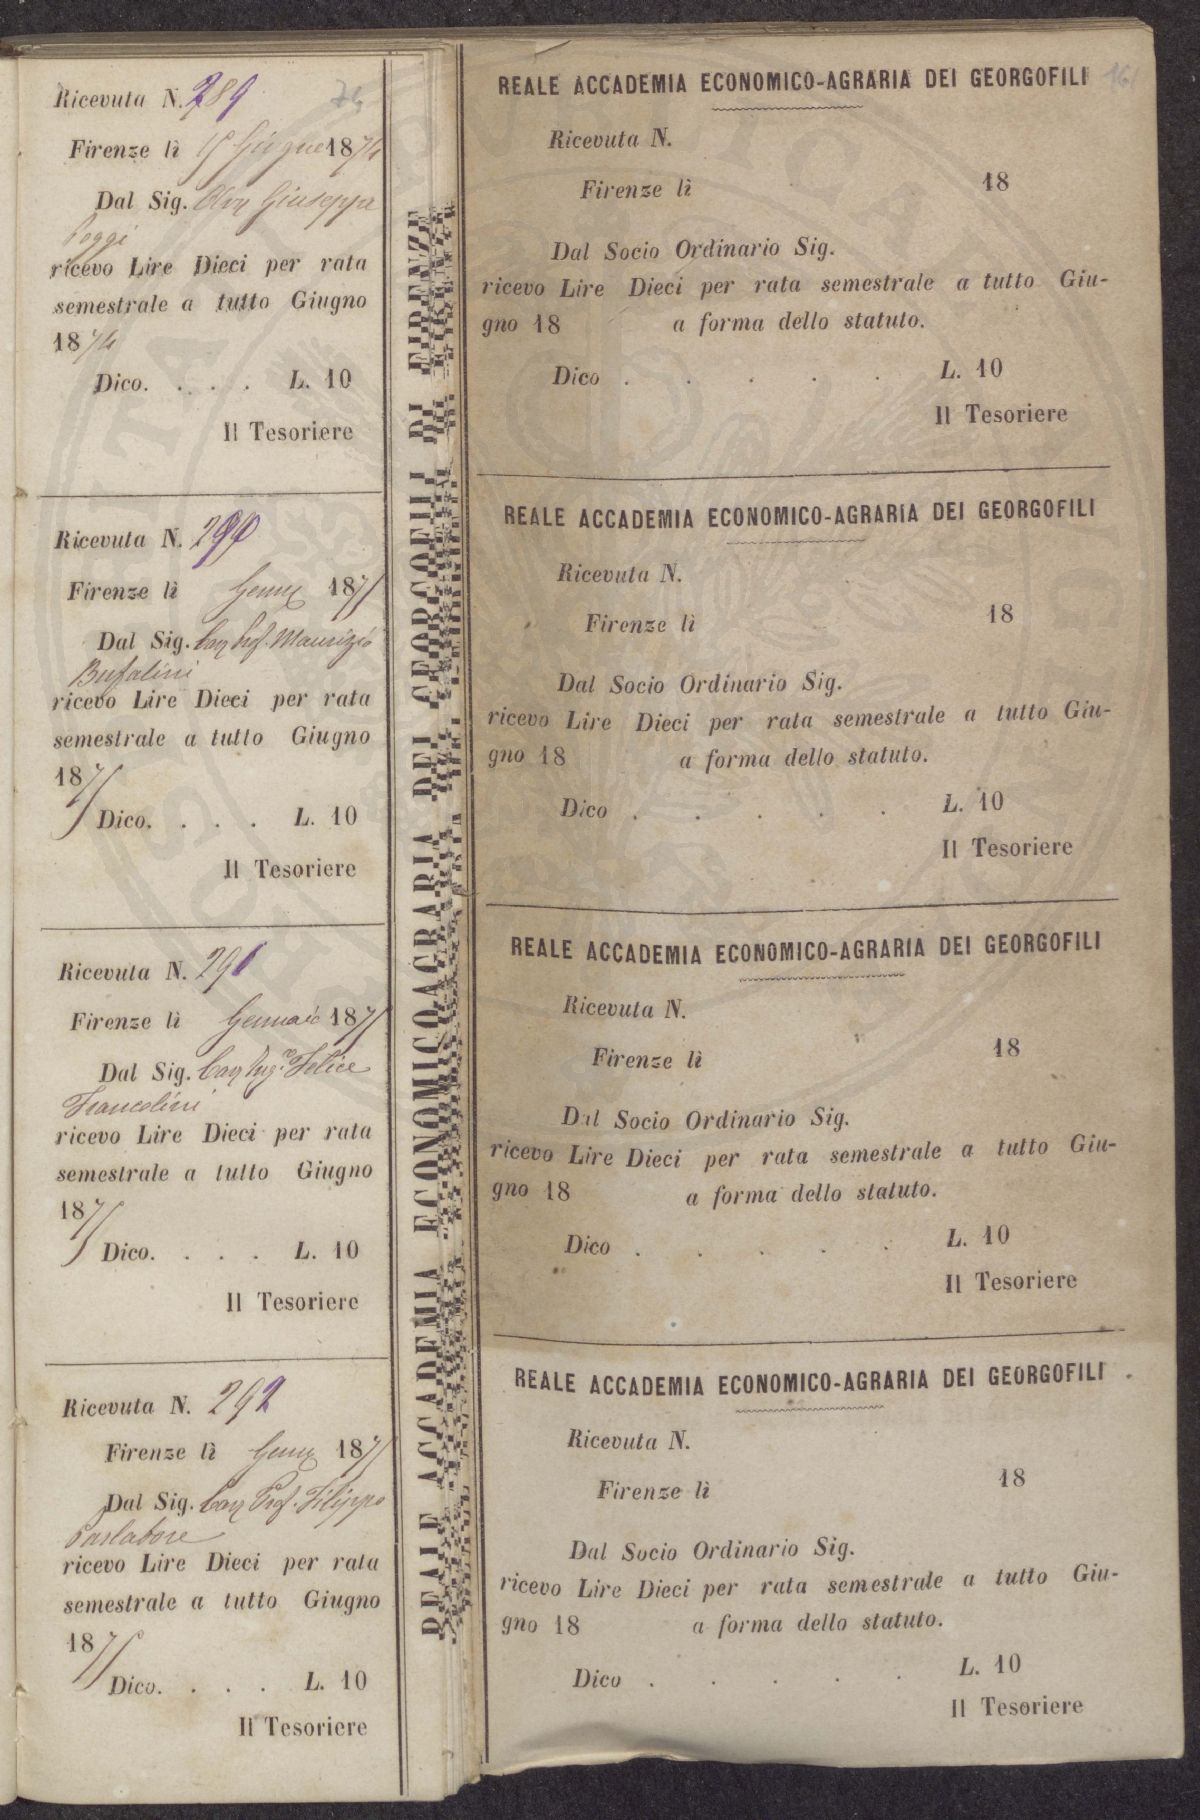 Ricevuta N. 289
Firenze lì 15 Giugno 1874
Dal Sig. Avv Giuseppe
Poggi
ricevo Lire Dieci per rata
semestrale a tutto Giugno
1874
Dico. . . . L. 10
Il Tesoriere
Ricevuta N. 290
Firenze lì 1875
Dal Sig. Cav Prof. Maurizio
Bufalini
ricevo Lire Dieci per rata
semestrale a tutto Giugno
1875
Dico. . . . L. 10
Il Tesoriere
Ricevuta N. 291
Firenze lì Gennaio 1875
Dal Sig. Cav Ing.e Felice
Francolini
ricevo Lire Dieci per rata
semestrale a tutto Giugno
1875
Dico. . . . L. 10
Il Tesoriere
Ricevuta N. 292
Firenze lì 1875
Dal Sig. Cav Prof. Filippo
Parlatore
ricevo Lire Dieci per rata
semestrale a tutto Giugno
1875
Dico. . . . L. 10
Il Tesoriere
REALE ACCADEMIA ECONOMICO-AGRARIA DEI GEORGOFILI DI FIRENZE
REALE ACCADEMIA ECONOMICO-AGRARIA DEI GEORGOFILI
161
Ricevuta N.
Firenze lì 18
Dal Socio Ordinario Sig.
ricevo Lire Dieci per rata semestrale a tutto Giu-
gno 18 a forma dello statuto.
Dico . . . . . L. 10
Il Tesoriere
REALE ACCADEMIA ECONOMICO-AGRARIA DEI GEORGOFILI
Ricevuta N.
Firenze lì 18
Dal Socio Ordinario Sig.
ricevo Lire Dieci per rata semestrale a tutto Giu-
gno 18 a forma dello statuto.
Dico . . . . . L. 10
Il Tesoriere
REALE ACCADEMIA ECONOMICO-AGRARIA DEI GEORGOFILI
Ricevuta N.
Firenze lì 18
Dal Socio Ordinario Sig.
ricevo Lire Dieci per rata semestrale a tutto Giu-
gno 18 a forma dello statuto.
Dico . . . . . L. 10
Il Tesoriere
REALE ACCADEMIA ECONOMICO-AGRARIA DEI GEORGOFILI
Ricevuta N.
Firenze lì 18
Dal Socio Ordinario Sig.
ricevo Lire Dieci per rata semestrale a tutto Giu-
gno 18 a forma dello statuto.
Dico . . . . . L. 10
Il Tesoriere